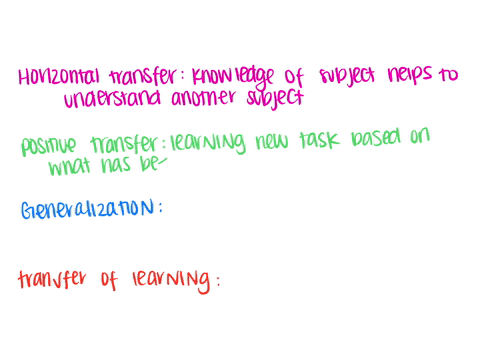 Horizontal transfer: Knowledge of subject helps to
understand another subject
positive transfer: learning new task based on
what has be
Generalization:
transfer of learning: